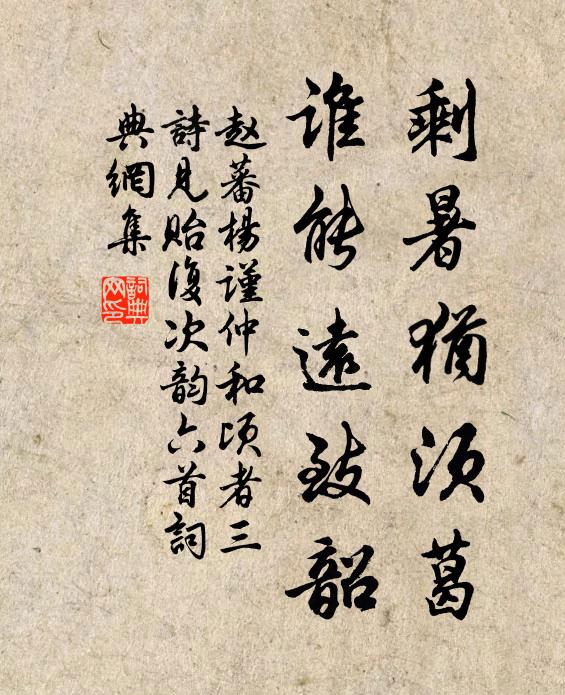 剩暑猶須葛
誰能遠致韶
赵蕃楊謹仲和頃者三
詩見貽復次韵六首詞
典網集
詞典網印